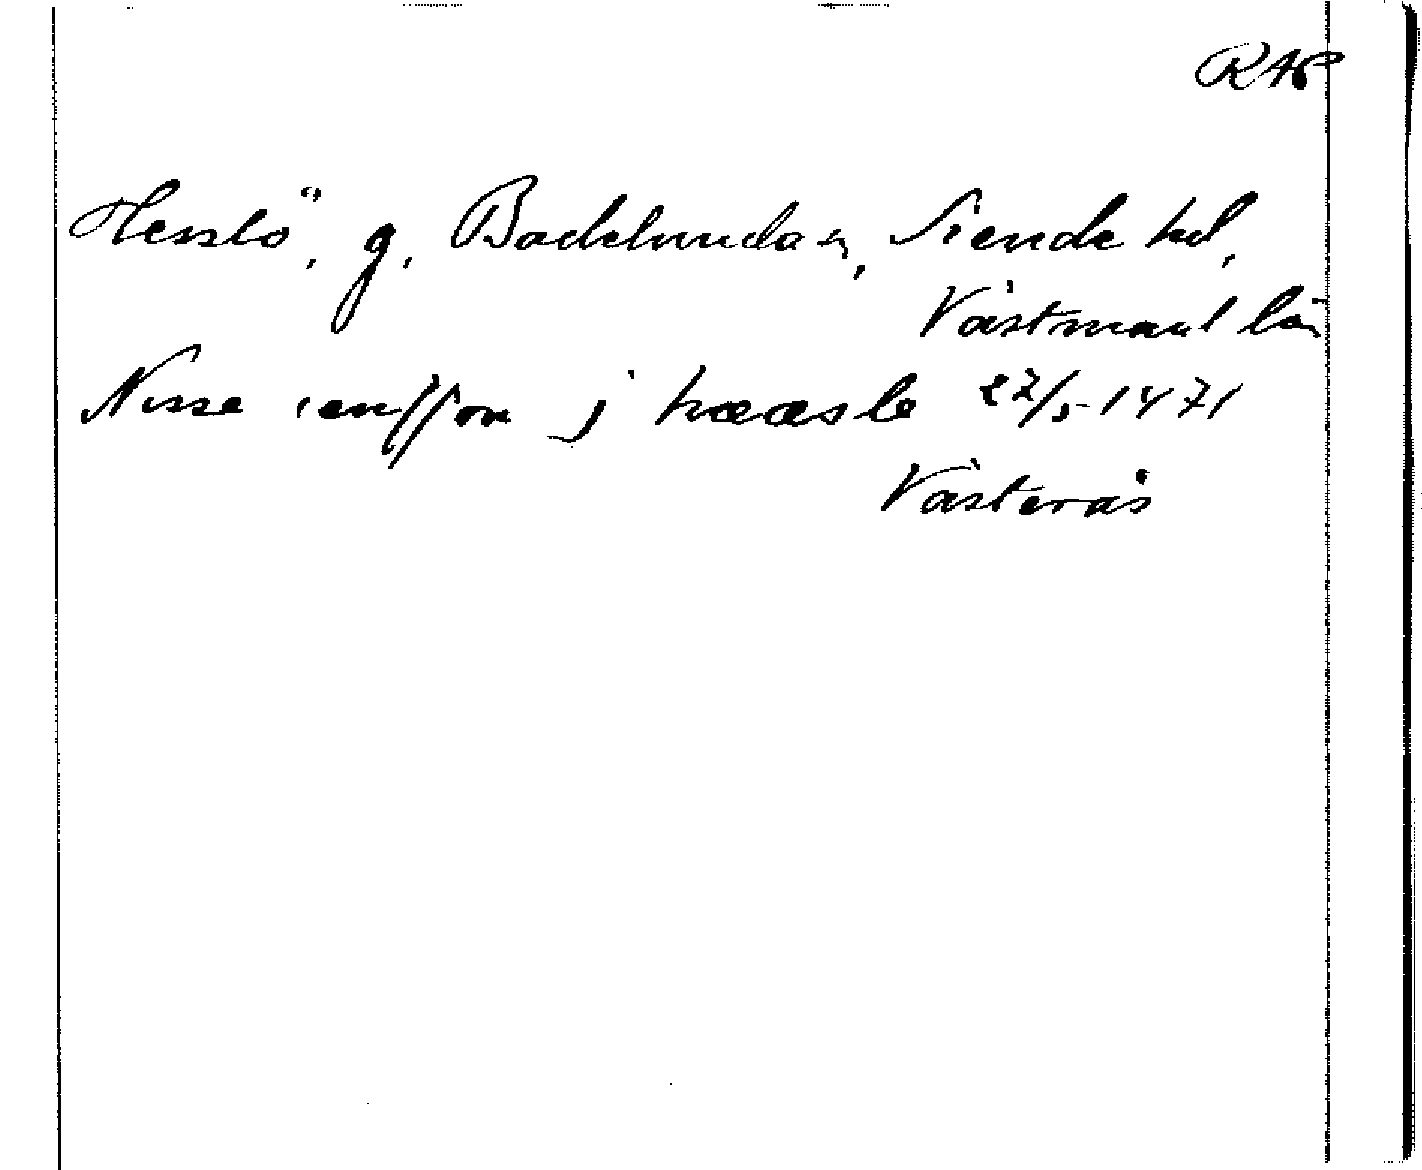 RAP
Hesslö, g, Badelunda sn, Siende hd,
Västmanl län
Nisse ienſſon j hææsle 27/5-1471
Västerås